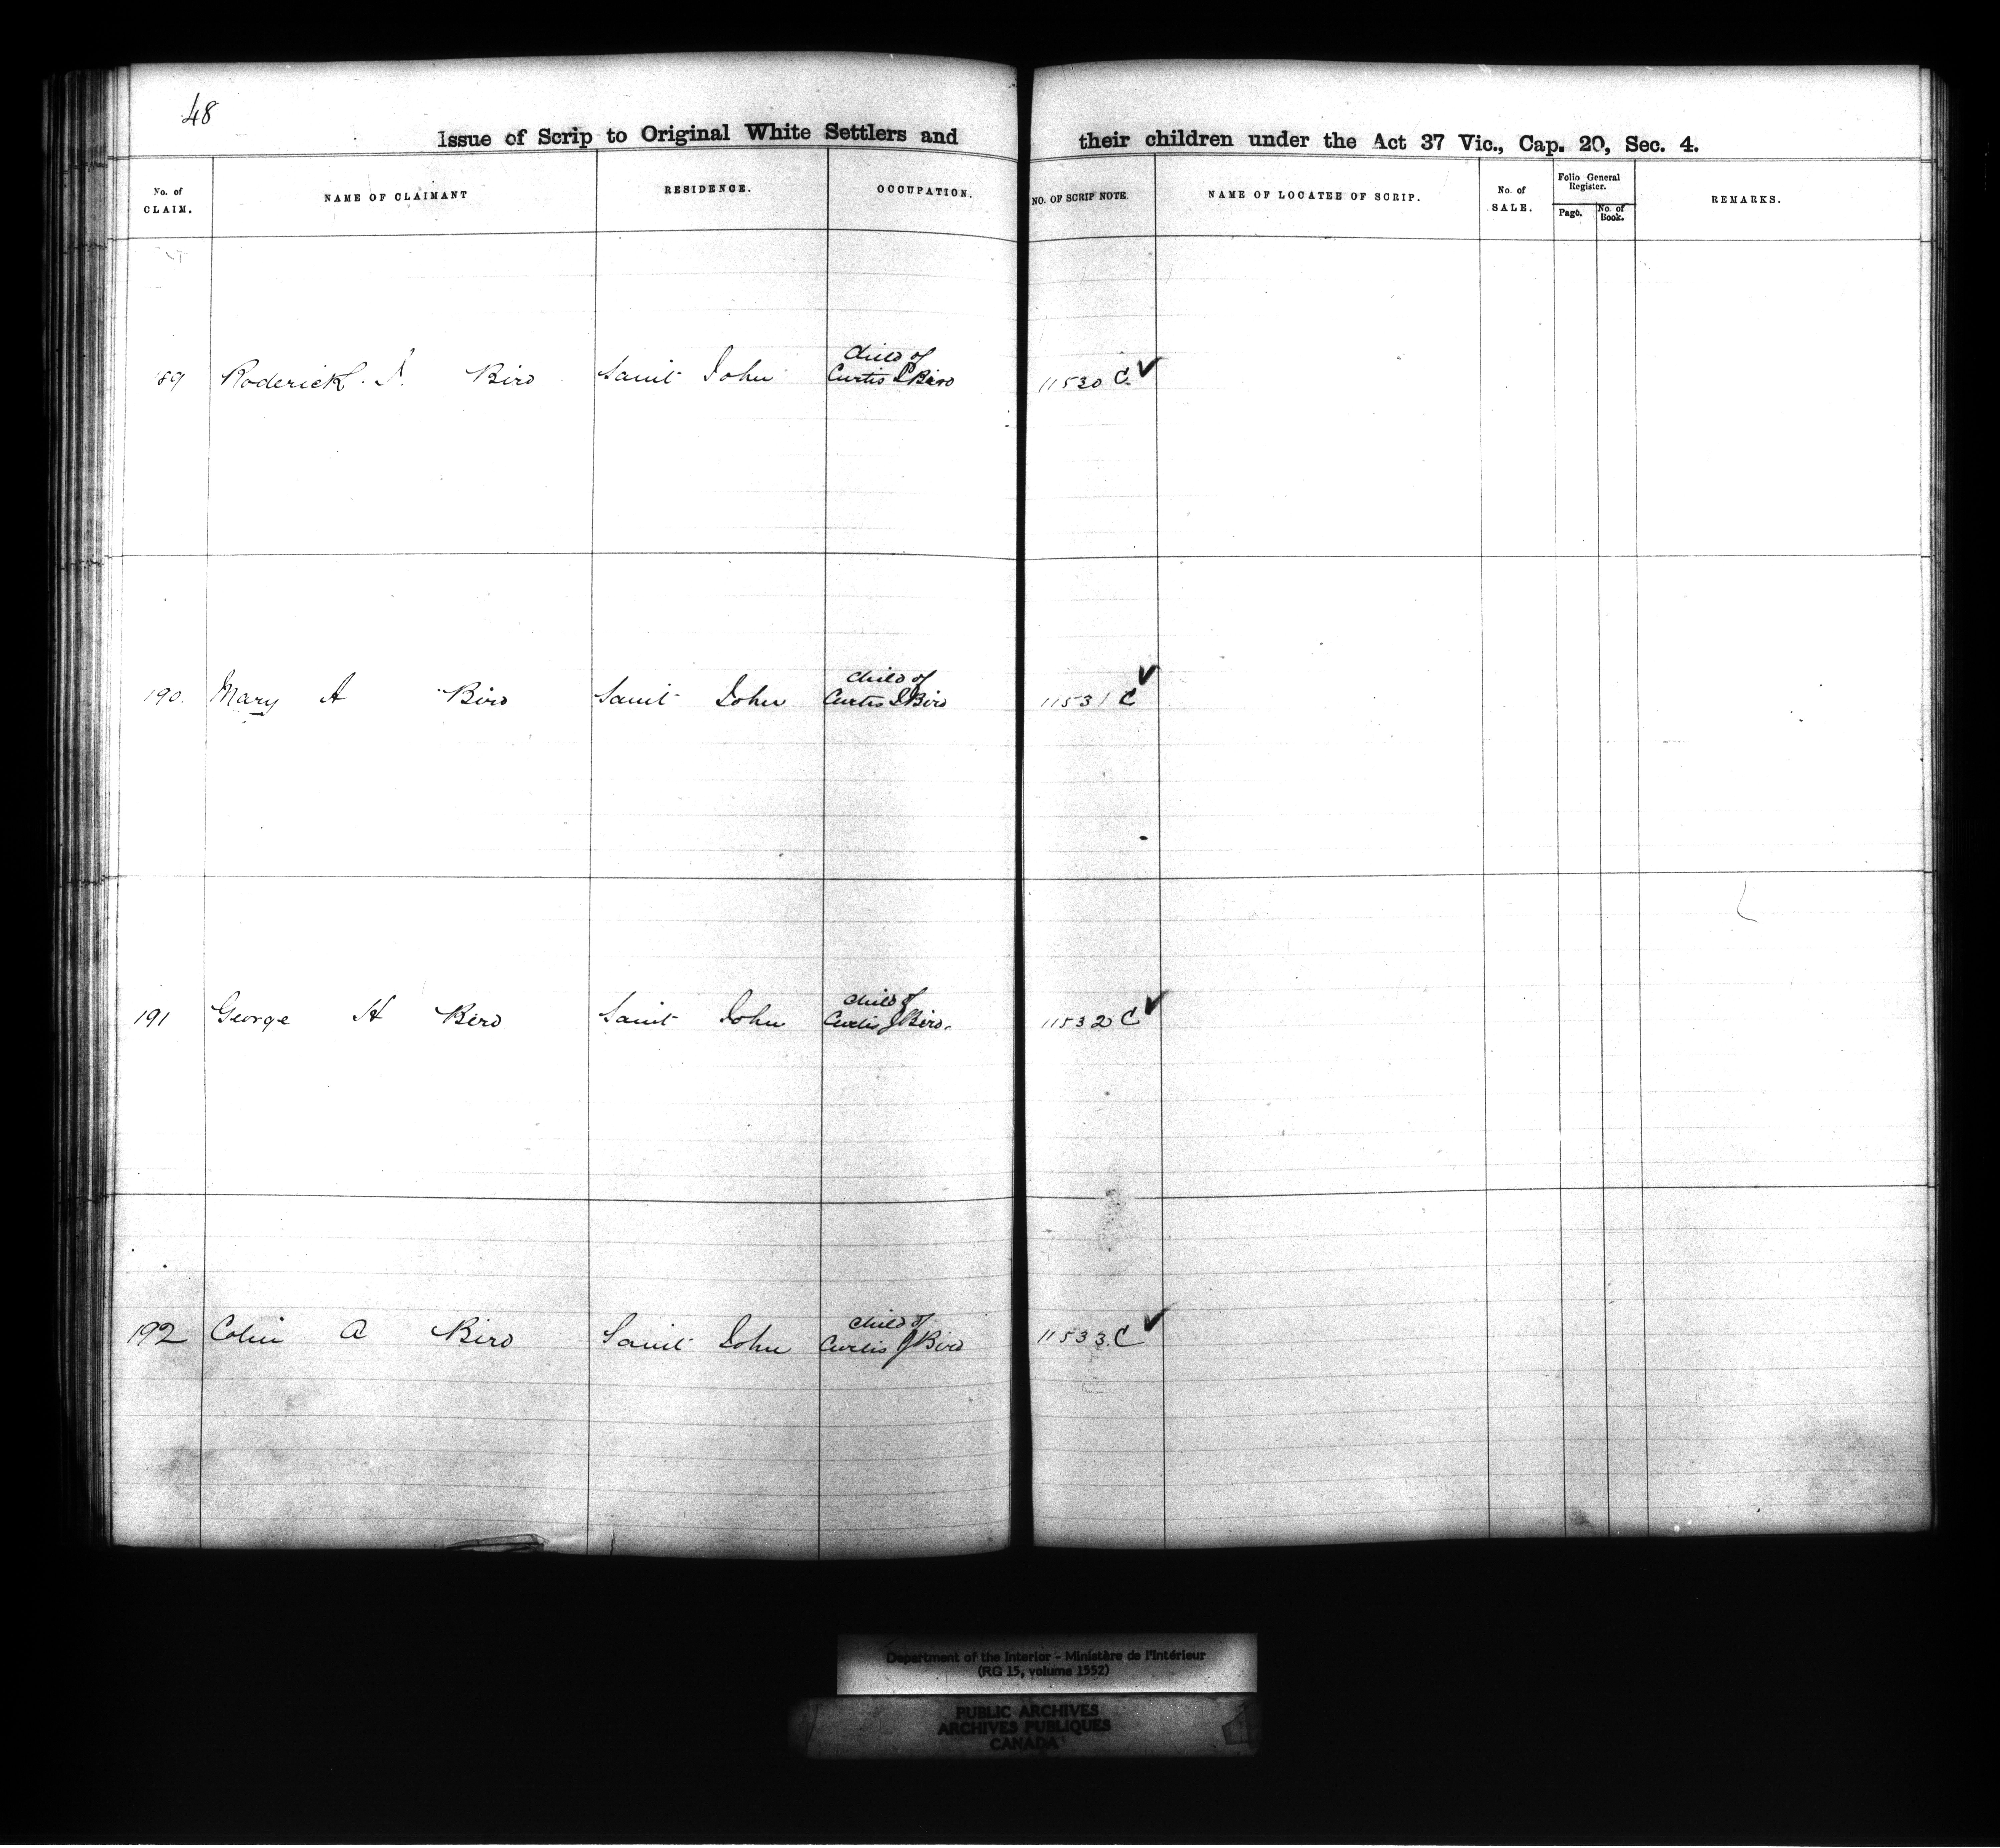 48
Issue of Scrip to Original White Settlers and their children under the Act 37 Vic., Cap. 20, Sec. 4.
No. of CLAIM. NAME OF CLAIMANT RESIDENCE. OCCUPATION. NO. OF SCRIP NOTE. NAME OF LOCATEE OF SCRIP. No. of SALE. Folio General Register. Page. No. of Book. REMARKS.
child of
189 Roderick J. Bird Saint John Curtis J Bird 11530 C. ✓
child of
190. Mary A Bird Saint John Curtis J Bird 11531 C ✓
child of
191 George H Bird Saint John Curtis J Bird. 11532 C ✓
child of
192 Colin A Bird Saint John Curtis J Bird 11533. C ✓
Department of the Interior - Ministère de l'Intérieur
(RG 15, volume 1552)
PUBLIC ARCHIVES
ARCHIVES PUBLIQUES
CANADA